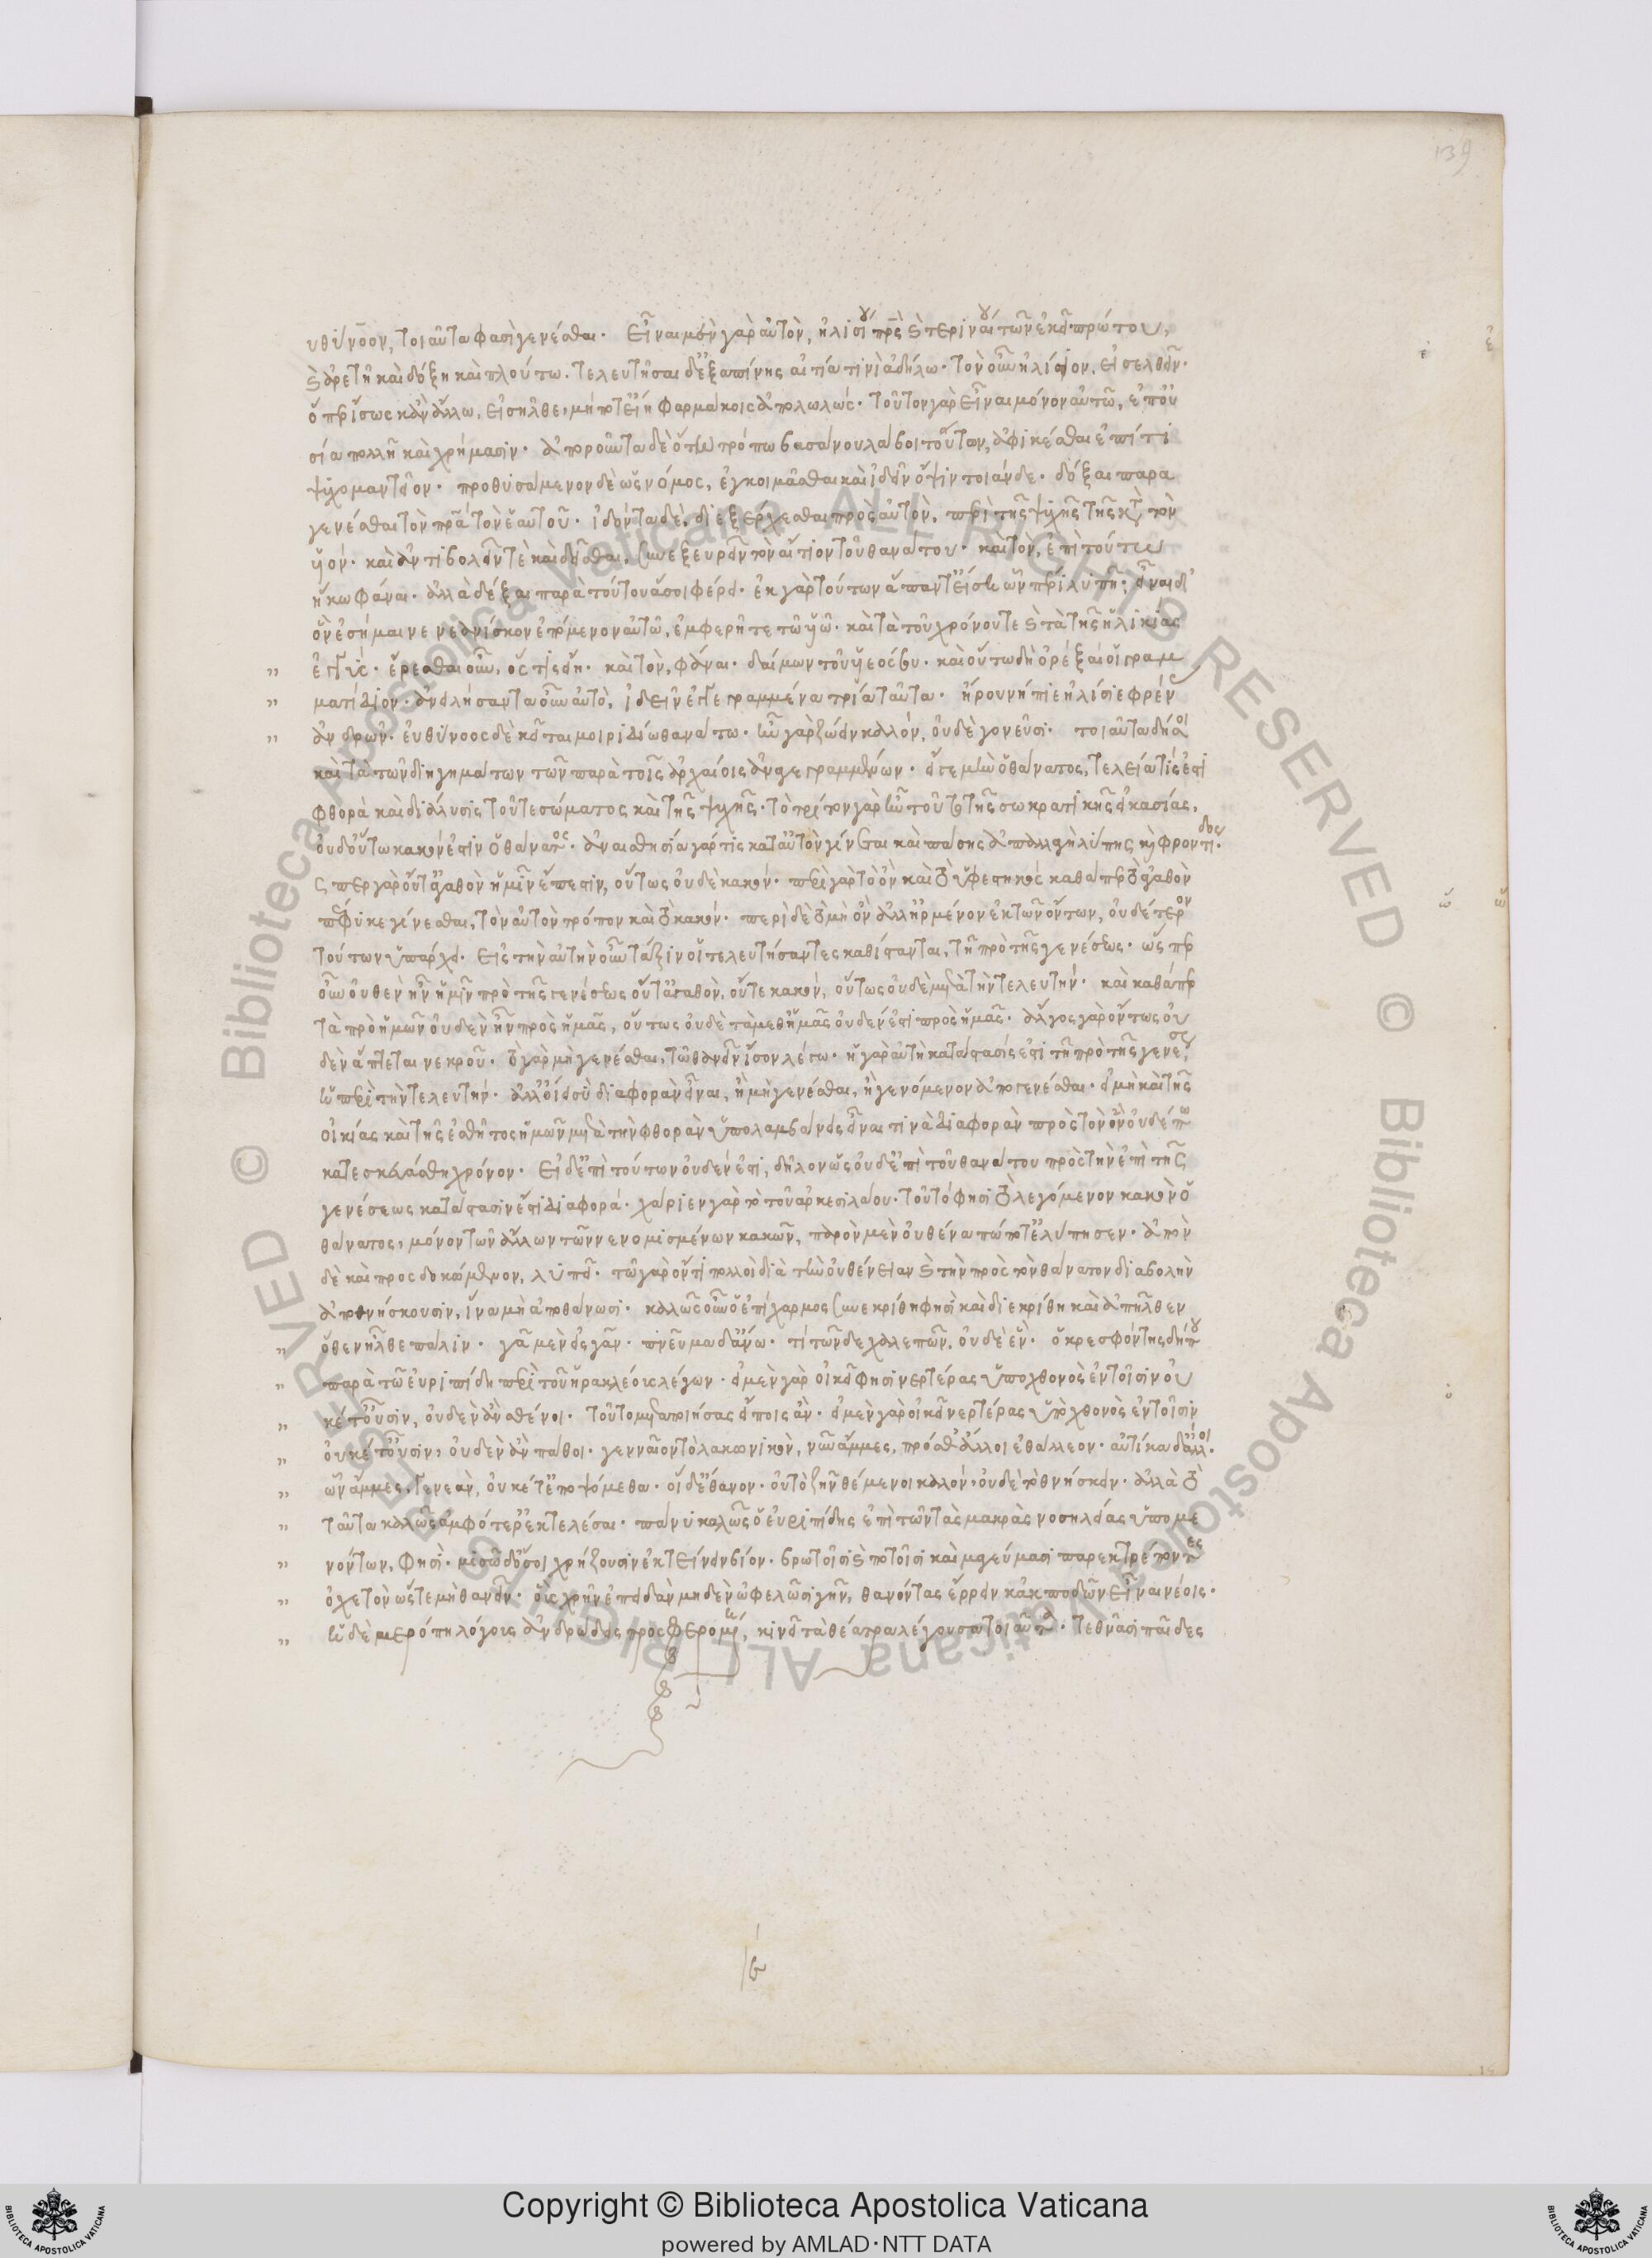 139
υθύνοον, τοιαῦτα φασὶ γενέσθαι. Εἶναι μὲν γὰρ αὐτὸν, ἠλίσιου πρς καὶ τεριναίου τῶν ἐκεῖ πρώτου,
καὶ ἀρετῇ καὶ δόξη καὶ πλούτω. τελευτῆσαι δ' ἐξαπίνης αἰτία τινὶ ἀδήλω. τὸν οὖν ἠλύσιον, εἰσελθεῖν.
ὅπερ ἴσως κἂν ἄλλω, εἰσῆλθε, μή ποτ' εἴη φαρμάκοις ἀπολωλώς. τοῦτον γὰρ εἶναι μόνον αὐτῶ, ἐπ' οὐ
σία πολλῆ καὶ χρήμασιν. ἀποροῦντα δὲ ὅτω τρόπω βάσανον λάβοι τούτων, ἀφικέσθαι ἐπί τι
ψυχομαντεῖον. προθυσάμενον δὲ ὡς νόμος, ἐγκοιμᾶσθαι καὶ ἰδεῖν ὄψιν τοιάνδε. δόξαι παρα
γενέσθαι τὸν πρα τὸν ἑαυτοῦ. ἰδόντα δὲ, διεξέρχεσθαι πρὸς αὐτὸν, περὶ τῆς ψυχῆς τῆς κτ τὸν
υἱόν. καὶ ἀντιβολεῖν τὲ καὶ δεῖσθαι, συνεξευρεῖν τὸν αἴτιον τοῦ θανάτου. καὶ τὸν, ἐπὶ τούτω
ἥκω φάναι. ἀλλὰ δέξαι παρὰ τούτου ἅ σοι φέρει. ἐκ γὰρ τούτων ἅπαντ' εἴση ὧν πέρι λυπῆ; εἶναι δ'
ὃν ἐσήμαινε νεανίσκον ἑπόμενον αὐτῶ, ἐμφερῆ τε τῶ υἱῶ. καὶ τὰ τοῦ χρόνου τε καὶ τὰ τῆς ἡλικίας
ἐγγύς. ἔρεσθαι οὖν, ὅς τις εἴη. καὶ τὸν, φάναι. δαίμων τοῦ υἱέος σου. καὶ οὕτω δὴ ὀρέξαι οἱ γραμ
ματίδιον. ἀνειλήσαντα οὖν αὐτὸ, ἰδεῖν ἐγγεγραμμένα τρία ταῦτα. ἠρουνήπιε ἠλύσιε φρέν
ἀνδρῶν. ἐυθύνοος δὲ κεῖται μοιριδίω θανάτω. οὐ γὰρ ζώειν καλὸν, οὐδὲ γονεῦσι. τοιαῦτα δήσοι
καὶ τὰ τῶν διηγημάτων τῶν παρὰ τοῖς ἀρχαίοις ἀναγεγραμμένων. εἴγε μὴν ὁ θάνατος, τελεία τίς ἐστι
φθορὰ καὶ διάλυσις τοῦ τε σώματος καὶ τῆς ψυχῆς. τὸ τρίτον γὰρ ἦν τοῦτο τῆς σωκρατικῆς εἰκασίας,
οὐδ' οὕτω κακόν ἐστιν ὁ θάνατος. ἀναισθησία γάρ τις κατ' αὐτὸν γίνεται καὶ πάσης ἀπαλλαγὴ λύπης καὶ φροντίδος.
ὥσπερ γὰρ οὔτ' ἀγαθὸν ἡμῖν ἔπεστιν, οὕτως οὐδὲ κακόν. περὶ γὰρ τὸ ὂν καὶ τὸ ὑφεστηκὸς καθάπερ τὸ ἀγαθὸν
πέφυκε γίνεσθαι, τὸν αὐτὸν τρόπον καὶ τὸ κακόν. περὶ δὲ τὸ μὴ ὂν ἀλλ' ἠρμένον ἐκ τῶν ὄντων, οὐδέτερον
τούτων ὑπάρχει. Εἰς τὴν αὐτὴν οὖν τάξιν οἱ τελευτήσαντες καθίστανται, τῆ πρὸ τῆς γενέσεως. ὥσπερ
οὖν οὐθὲν ἦν ἡμῖν πρὸ τῆς γενέσεως οὔτ' ἀγαθὸν, οὔτε κακόν, οὕτως οὐδὲ μετὰ τὴν τελευτήν. καὶ καθάπερ
τὰ πρὸ ἡμῶν οὐδὲν ἦν πρὸς ἡμᾶς, οὕτως οὐδὲ τὰ μεθ' ἡμᾶς οὐδέν ἐστι πρὸς ἡμᾶς. ἄλγος γὰρ ὄντως οὐ
δὲν ἅπτεται νεκροῦ. τὸ γὰρ μὴ γενέσθαι, τῶ θανεῖν ἴσον λέγω. ἡ γὰρ αὐτὴ κατάστασίς ἐστι τῆ πρὸ τῆς γενέσεως
ἡ περὶ τὴν τελευτήν. ἀλλ' οἴει σὺ διαφορὰν εἶναι, ἢ μὴ γενέσθαι, ἢ γενόμενον ἀπογενέσθαι. εἰ μὴ καὶ τῆς
οἰκίας καὶ τῆς ἐσθῆτος ἡμῶν μετὰ τὴν φθορὰν ὑπολαμβάνεις εἶναι τινὰ διαφορὰν πρὸς τὸν ὃν οὐδέπω
κατεσκευάσθη χρόνον. Εἰ δ' ἐπὶ τούτων οὐδέν ἐστι, δῆλον ὡς οὐδ' ἐπὶ τοῦ θανάτου πρὸς τὴν ἐπὶ τῆς
γενέσεως κατάστασιν ἔστι διαφορά. χαρίεν γὰρ τὸ τοῦ ἀρκεσιλάου. τοῦτό φησι τὸ λεγόμενον κακὸν ὁ
θάνατος, μόνον τῶν ἄλλων τῶν νενομισμένων κακῶν, παρὸν μὲν οὐθένα πώποτ' ἐλύπησεν. ἀπὸν
δὲ καὶ προσδοκώμενον, λυπεῖ. τῶ γὰρ ὄντι πολλοὶ διὰ τὴν οὐθένειαν καὶ τὴν πρὸς τὸν θάνατον διαβολὴν
ἀποθνήσκουσιν, ἵνα μὴ ἀποθάνωσι. καλῶς οὖν ὁ ἐπίχαρμος συνεκρίθη φησὶ καὶ διεκρίθη καὶ ἀπῆλθεν
ὅθεν ἦλθε πάλιν. γᾶ μὲν εἰς γᾶν. πνεῦμα δ' ἄνω. τί τῶνδε χαλεπῶν, οὐδὲ ἕν. ὁ κρεσφόντης δή που
παρὰ τῶ ἐυριπίδη περὶ τοῦ ἡρακλέους λέγων. εἰ μὲν γὰρ οἰκεῖ φησι νερτέρας ὑποχθονὸς ἐν τοῖσιν οὐ
κέτ' οὖσιν, οὐδὲν ἂν σθένοι. τοῦτο μεταποιήσας εἴποις ἄν. εἰ μὲν γὰρ οἰκεῖ νερτέρας ὑπὸ χθονὸς ἐν τοῖσιν
οὐκέτ' οὖσιν, οὐδὲν ἂν πάθοι. γενναῖον τὸ λακωνικὸν, νῦν ἄμμες, πρόσθ' ἄλλοι ἐθάλλεον. αὐτίκα δ' ἄλλοι.
ὧν ἄμμες, γενεὰν, οὐκέτ' ἐποψόμεθα. οἱ δ' ἔθανον. οὐ τὸ ζῆν θέμενοι καλὸν. οὐδὲ τὸ θνήσκειν. ἀλλὰ τὸ
ταῦτα καλῶς ἀμφότερ' ἐκτελέσαι. πάνυ καλῶς ὁ ἐυριπίδης ἐπὶ τῶν τὰς μακρὰς νοσηλείας ὑπομε
νόντων, φησὶ. μισῶ δ' ὅσοι χρήζουσιν ἐκτείνειν βίον. βρωτοῖσι καὶ ποτοῖσι καὶ μαγεύμασι παρεκτρέποντες
ὀχετὸν ὥστε μὴ θανεῖν. οὓς χρῆν ἐπειδὰν μηδὲν ὠφελῶσι γῆν, θανόντας ἔρρειν κἀκποδῶν εἶναι νέοις.
ἡ δὲ μερόπη λόγους ἀνδρώδεις προσφερομένη, κινεῖ τὰ θέατρα λέγουσα τοιαῦτα. τεθνᾶσι παῖδες
Copyright © Biblioteca Apostolica Vaticana
powered by AMLAD·NTT DATA